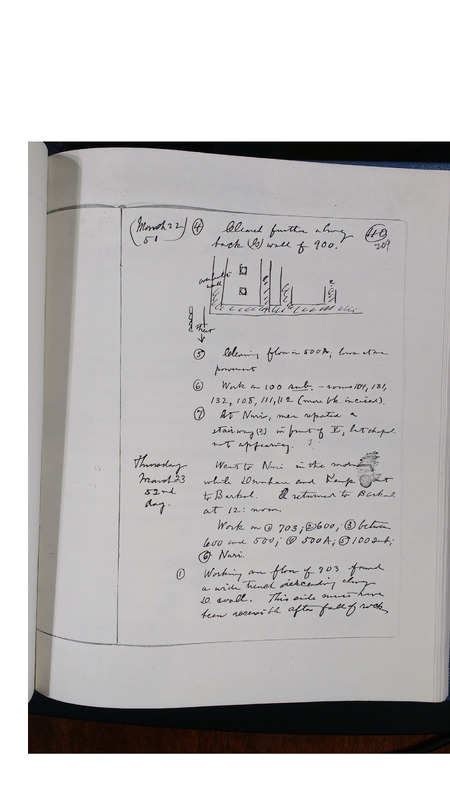 (March 22) ④ Cleared further along
51 back (W) wall of 900.
40
209
wall
street
⑤ Cleaning floor in 500A, lower stone
pavement
⑥ Work on 100 sub. - rooms 104, 131,
132, 108, 111, 112 (more blk incised).
⑦ At Nuri, men reported a
stairway (?) in front of II, but chapel
not appearing.
Thursday
March 23
52nd
day.
Went to Nuri in the morning
while Dunham and Kemp went
to Barkal. Returned to Barkal
at 12: noon.
Work on ① 703; ② 600; ③ between
600 and 500; ④ 500A; ⑤ 100 sub;
⑥ Nuri.
① Working on floor of 703 found
a wide trench descending along
wall. This side must have
been accessible after fall of rock